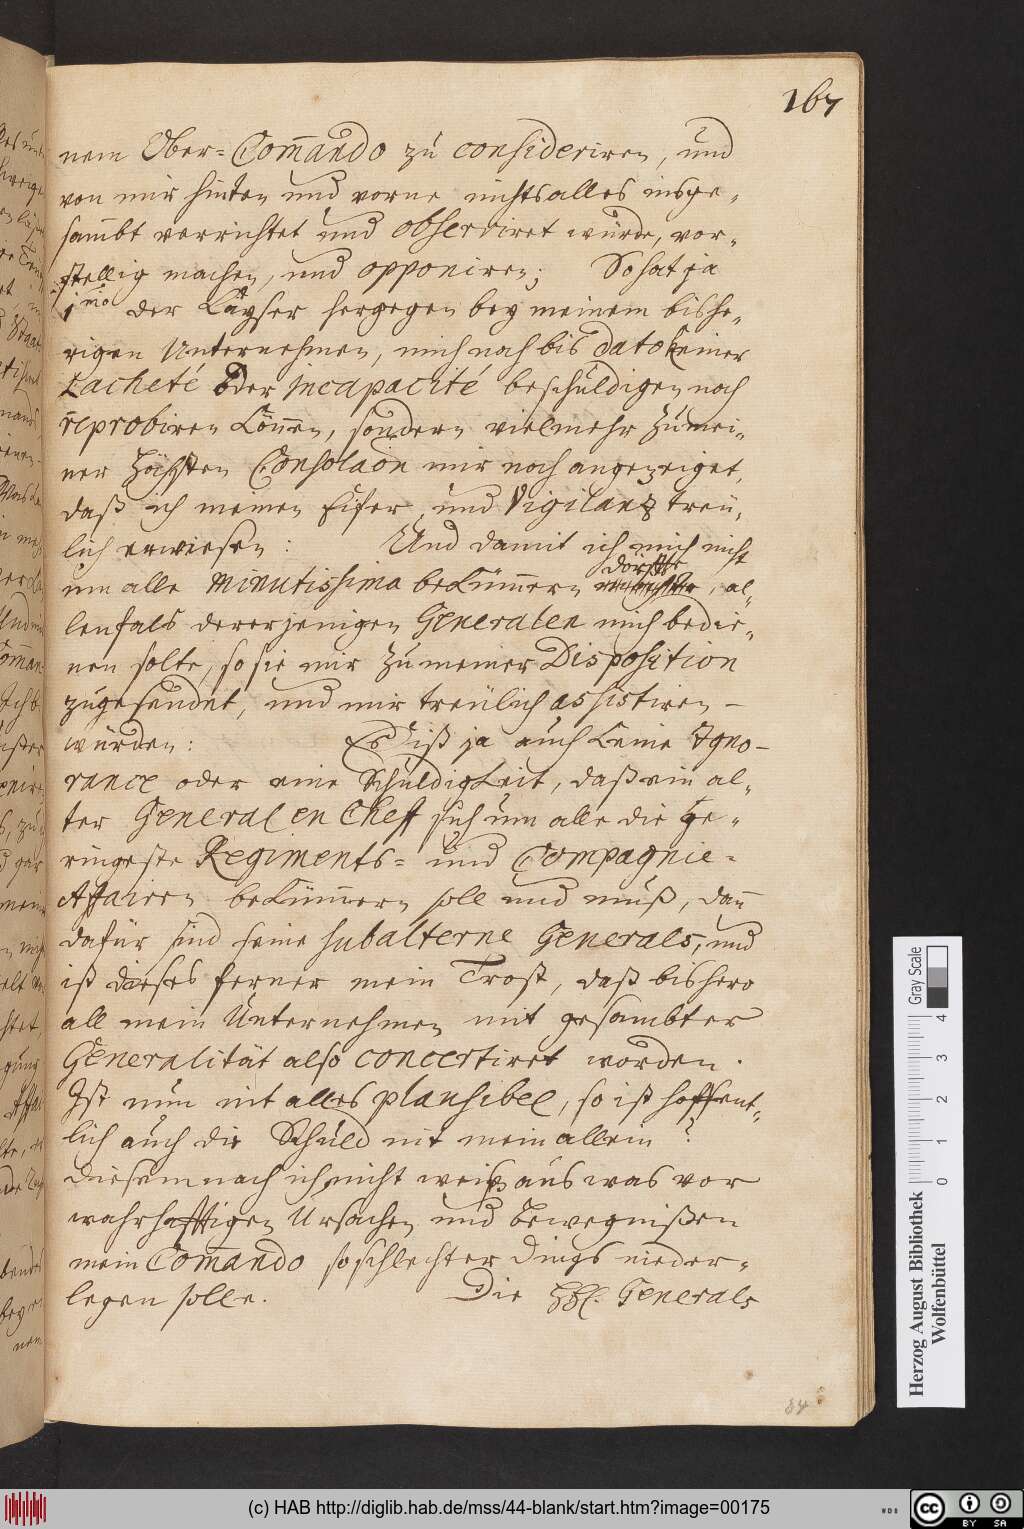 167
nem Ober-Com̄ando zu consideriren, und
von mir hinten und vorne nichts alles insge-
sambt verrichtet und observiret würde, vor-
stellig machen, und opponiren; So hat ja
1mo der Kayser hergegen bey meinem bishe-
rigen Unternehmen, mich noch bis dato keiner
Lacheté oder incapacité beschuldigen noch
reprobiren können, sondern vielmehr zu mei-
ner höchsten Consolaōn mir noch angezeiget,
daß ich meinen Eifer und Vigilanz treu-
lich erwiesen: Und damit ich mich nicht
um alle minutissima bekümmern dörffte, al-
lenfals dererjenigen Generalen mich bedie-
nen solte, so sie mir zu meiner Disposition
zugesendet, und mir treulich assistiren -
würden: Es ist ja auch keine Igno-
rance oder eine Schuldigkeit, daß ein al-
ter General en Cheff sich um alle die ge-
ringeste Regiments- und Compagnie-
Affairen bekümmern soll und muß, dan̄
dafür sind seine subalterne Generals, und
ist dieses ferner mein Trost, daß bishero
all mein Unternehmen mit gesambter
Generalität also concertiret worden.
Ist nun nit alles plausibel, so ist hoffent-
lich auch die Schuld nit mein allein?
Diesemnach ich nicht weiß aus was vor
wahrhafftigen Ursachen und Bewegnißen
mein Com̄ando so schlechter dings nieder-
legen solle. Die Hhl. Generals
84
Herzog August Bibliothek
Wolfenbüttel
Gray Scale
0 1 2 3 4
(c) HAB http://diglib.hab.de/mss/44-blank/start.htm?image=00175
WDB
cc BY SA